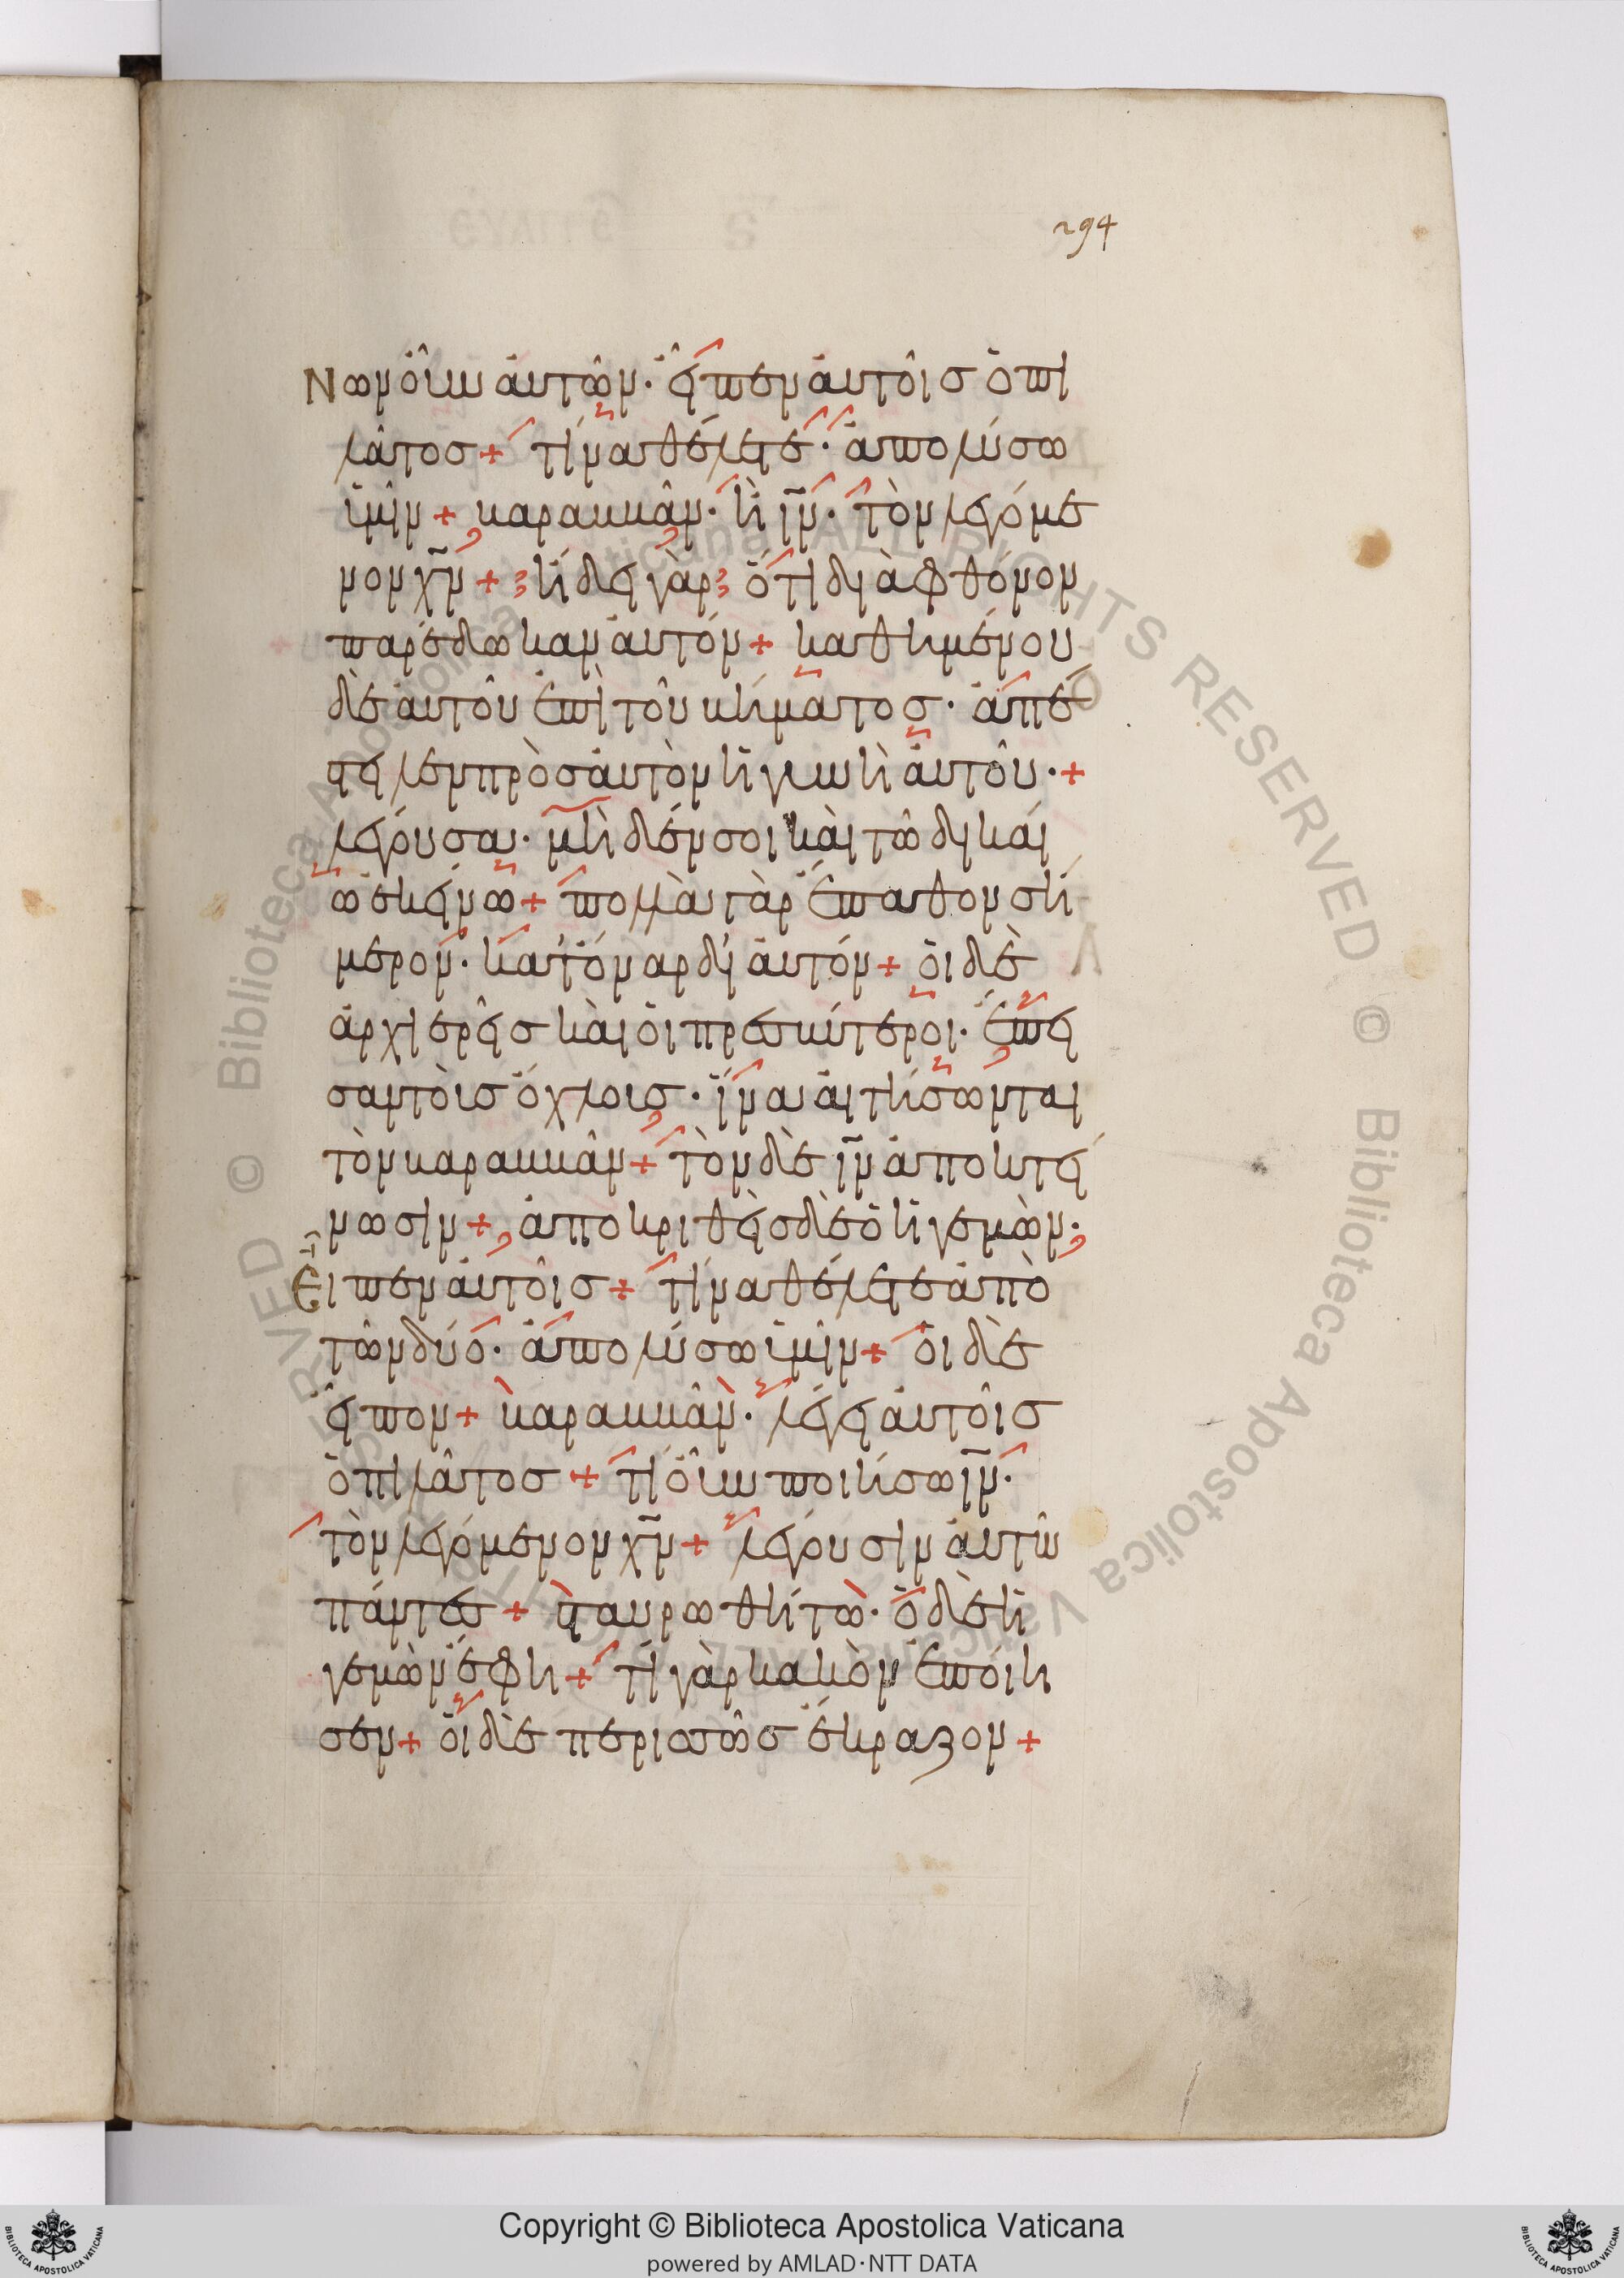 294
Νων οὖν αὐτῶν· εἶπεν αὐτοῖς ὁ πι
λάτος + τίνα θέλετε· ἀπολύσω
ὑμῖν + βαραββᾶν· ἢ ιν̅· τὸν λεγόμε
νον χν̅ + ἤδει γὰρ ὅτι διὰ φθόνον
παρέδωκαν αὐτόν + καθημένου
δὲ αὐτοῦ ἐπὶ τοῦ βήματος· ἀπέ
στειλεν πρὸς αὐτὸν ἡ γυνὴ αὐτοῦ· +
λέγουσα· μηδέν σοι καὶ τῶ δικαί
ω ἐκείνω + πολλὰ γὰρ ἔπαθον σή
μερον· κατ' ὄναρ δι' αὐτόν + οἱ δὲ
ἀρχιερεῖς καὶ οἱ πρεσβύτεροι· ἔπει
σαν τοὺς ὄχλους· ἵνα αἰτήσωνται
τὸν βαραββᾶν + τὸν δὲ ιν̅ ἀποκτεί
νωσιν + ἀποκριθεὶς δὲ ὁ ἡγεμὼν·
Εἶπεν αὐτοῖς + τίνα θέλετε ἀπὸ
τῶν δύο· ἀπολύσω ὑμῖν + οἱ δὲ
εἶπον + βαραββᾶν· λέγει αὐτοῖς
ὁ πιλάτος + τί οὖν ποιήσω ιν̅·
τὸν λεγόμενον χν̅ + λέγουσιν αὐτῶ
πάντες + σταυρωθήτω· ὁ δὲ ἡ
γεμὼν ἔφη + τί γὰρ κακὸν ἐποίη
σεν + οἱ δὲ περισσῶς ἔκραζον +
Copyright © Biblioteca Apostolica Vaticana
powered by AMLAD·NTT DATA